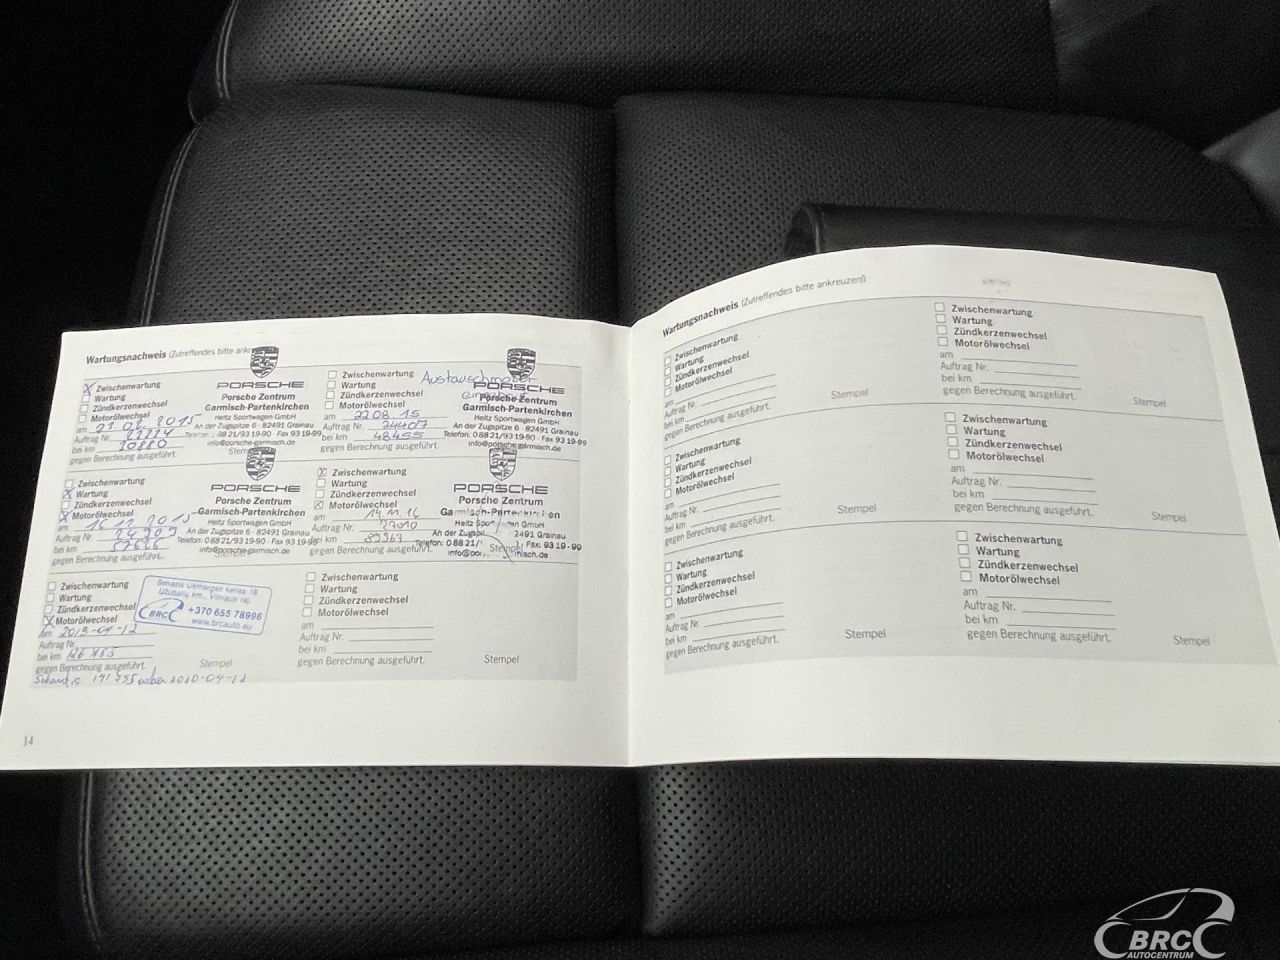 Wartungsnachweis (Zutreffendes bitte
Zwischenwartung
Wartung
Zündkerzenwechsel
Motorölwechsel
am
Auftrag Nr. 22224
bei km 10880
gegen Berechnung ausgeführt.
PORSCHE
Porsche Zentrum
Garmisch-Partenkirchen
Heitz Sportwagen GmbH
An der Zugspitze 6 · 82491 Grainau
Telefon: 0 88 21/93 19-90 · Fax 93 19-99
info@porsche-garmisch.de
Zwischenwartung
Wartung
Zündkerzenwechsel
Motorölwechsel
am 22.08.15
Auftrag Nr. 24407
bei km 48455
gegen Berechnung ausgeführt.
Austauschmotor
PORSCHE
Porsche Zentrum
Garmisch-Partenkirchen
Heitz Sportwagen GmbH
An der Zugspitze 6 · 82491 Grainau
Telefon: 0 88 21/93 19-90 · Fax 93 19-99
info@porsche-garmisch.de
Zwischenwartung
Wartung
Zündkerzenwechsel
Motorölwechsel
am 16.12.2015
Auftrag Nr. 24909
bei km
gegen Berechnung ausgeführt.
PORSCHE
Porsche Zentrum
Garmisch-Partenkirchen
Heitz Sportwagen GmbH
An der Zugspitze 6 · 82491 Grainau
Telefon: 0 88 21/93 19-90 · Fax 93 19-99
info@porsche-garmisch.de
Zwischenwartung
Wartung
Zündkerzenwechsel
Motorölwechsel
am 14.11.16
Auftrag Nr. 27010
bei km 89967
gegen Berechnung ausgeführt.
PORSCHE
Porsche Zentrum
Stempel
Zwischenwartung
Wartung
Zündkerzenwechsel
Motorölwechsel
am 2019-04-12
Auftrag Nr.
bei km
gegen Berechnung ausgeführt.
Stempel
BRC +370 655 78996
www.brcauto.eu
Zwischenwartung
Wartung
Zündkerzenwechsel
Motorölwechsel
am
Auftrag Nr.
bei km
gegen Berechnung ausgeführt.
Stempel
14
Wartungsnachweis (Zutreffendes bitte ankreuzen!)
Zwischenwartung
Wartung
Zündkerzenwechsel
Motorölwechsel
am
Auftrag Nr.
bei km
gegen Berechnung ausgeführt.
Stempel
Zwischenwartung
Wartung
Zündkerzenwechsel
Motorölwechsel
am
Auftrag Nr.
bei km
gegen Berechnung ausgeführt.
Stempel
Zwischenwartung
Wartung
Zündkerzenwechsel
Motorölwechsel
am
Auftrag Nr.
bei km
gegen Berechnung ausgeführt.
Stempel
Zwischenwartung
Wartung
Zündkerzenwechsel
Motorölwechsel
am
Auftrag Nr.
bei km
gegen Berechnung ausgeführt.
Stempel
Zwischenwartung
Wartung
Zündkerzenwechsel
Motorölwechsel
am
Auftrag Nr.
bei km
gegen Berechnung ausgeführt.
Stempel
Zwischenwartung
Wartung
Zündkerzenwechsel
Motorölwechsel
am
Auftrag Nr.
bei km
gegen Berechnung ausgeführt.
Stempel
BRC
AUTOCENTRUM